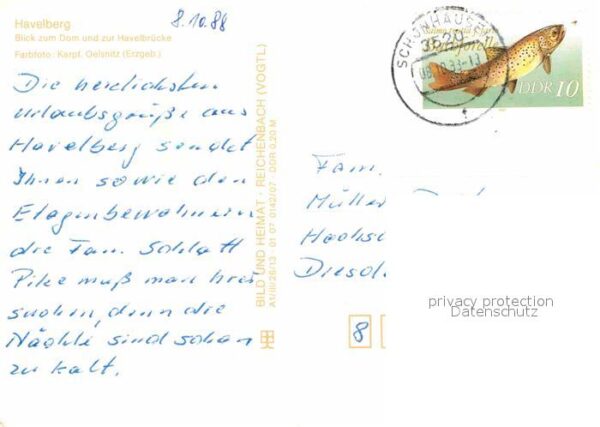 Havelberg
Blick zum Dom und zur Havelbrücke
Farbfoto: Karpf, Oelsnitz (Erzgeb.)
8.10.88
Die herzlichsten
Urlaubsgrüße aus
Havelberg sendet
Ihnen sowie den
Etagenbewohnern
die Fam. Schlatt
Pilze muß man hier
suchen, denn die
Nächte sind schon
zu kalt.
BILD UND HEIMAT · REICHENBACH (VOGTL)
A1/III/26/13 · 01 07 0142/07 · DDR 0,20 M
SCHÖNHAUSEN
3529
Bachforelle
DDR 10
Fam.
Müller
Dresd
8
privacy protection
Datenschutz